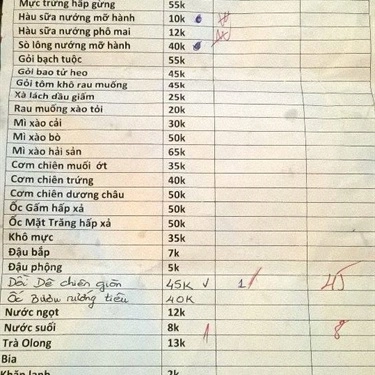 Mực trứng hấp gừng 55k
Hàu sữa nướng mỡ hành 10k
Hàu sữa nướng phô mai 12k
Sò lông nướng mỡ hành 40k
Gỏi bạch tuộc 55k
Gỏi bao tử heo 45k
Gỏi tôm khô rau muống 45k
Xà lách dầu giấm 25k
Rau muống xào tỏi 20k
Mì xào cải 30k
Mì xào bò 50k
Mì xào hải sản 65k
Cơm chiên muối ớt 35k
Cơm chiên trứng 40k
Cơm chiên dương châu 50k
Ốc Gấm hấp xả 50k
Ốc Mặt Trăng hấp xả 50k
Khô mực 35k
Đậu bắp 7k
Đậu phộng 5k
Dồi Dê chiên giòn 45K 1 45
Ốc Bươu nướng tiêu 40K
Nước ngọt 12k
Nước suối 8k 1 8
Trà Olong 13k
Bia
Khăn lạnh 2k